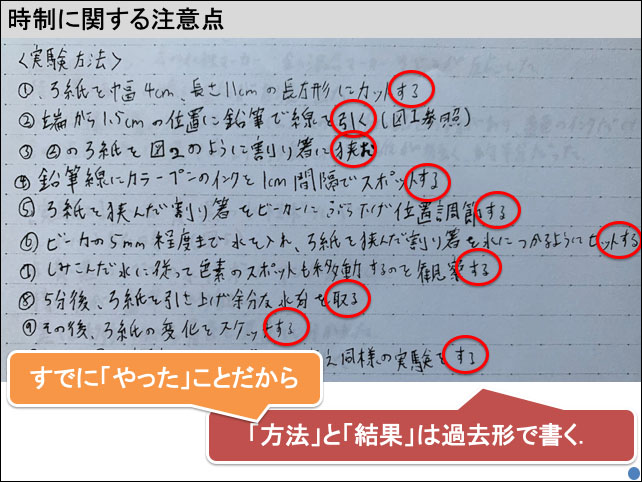 時制に関する注意点
〈実験方法〉
①、ろ紙を幅4cm、長さ11cmの長方形にカットする
② 端から1.5cmの位置に鉛筆で線を引く(図1参照)
③ ②のろ紙を図2のように割り箸に挟む
④ 鉛筆線にカラーペンのインクを1cm間隔でスポットする
⑤ ろ紙を挟んだ割り箸をビーカーにぶら下げ位置調節する
⑥ ビーカの5mm程度まで水を入れ、ろ紙を挟んだ割り箸を水につかるようにセットする
⑦ しみこんだ水に従って色素のスポットも移動するのを観察する
⑧ 5分後、ろ紙を引き上げ余分な水分を取る
⑨ その後、ろ紙の変化をスケッチする
え同様の実験をする
すでに「やった」ことだから
「方法」と「結果」は過去形で書く.